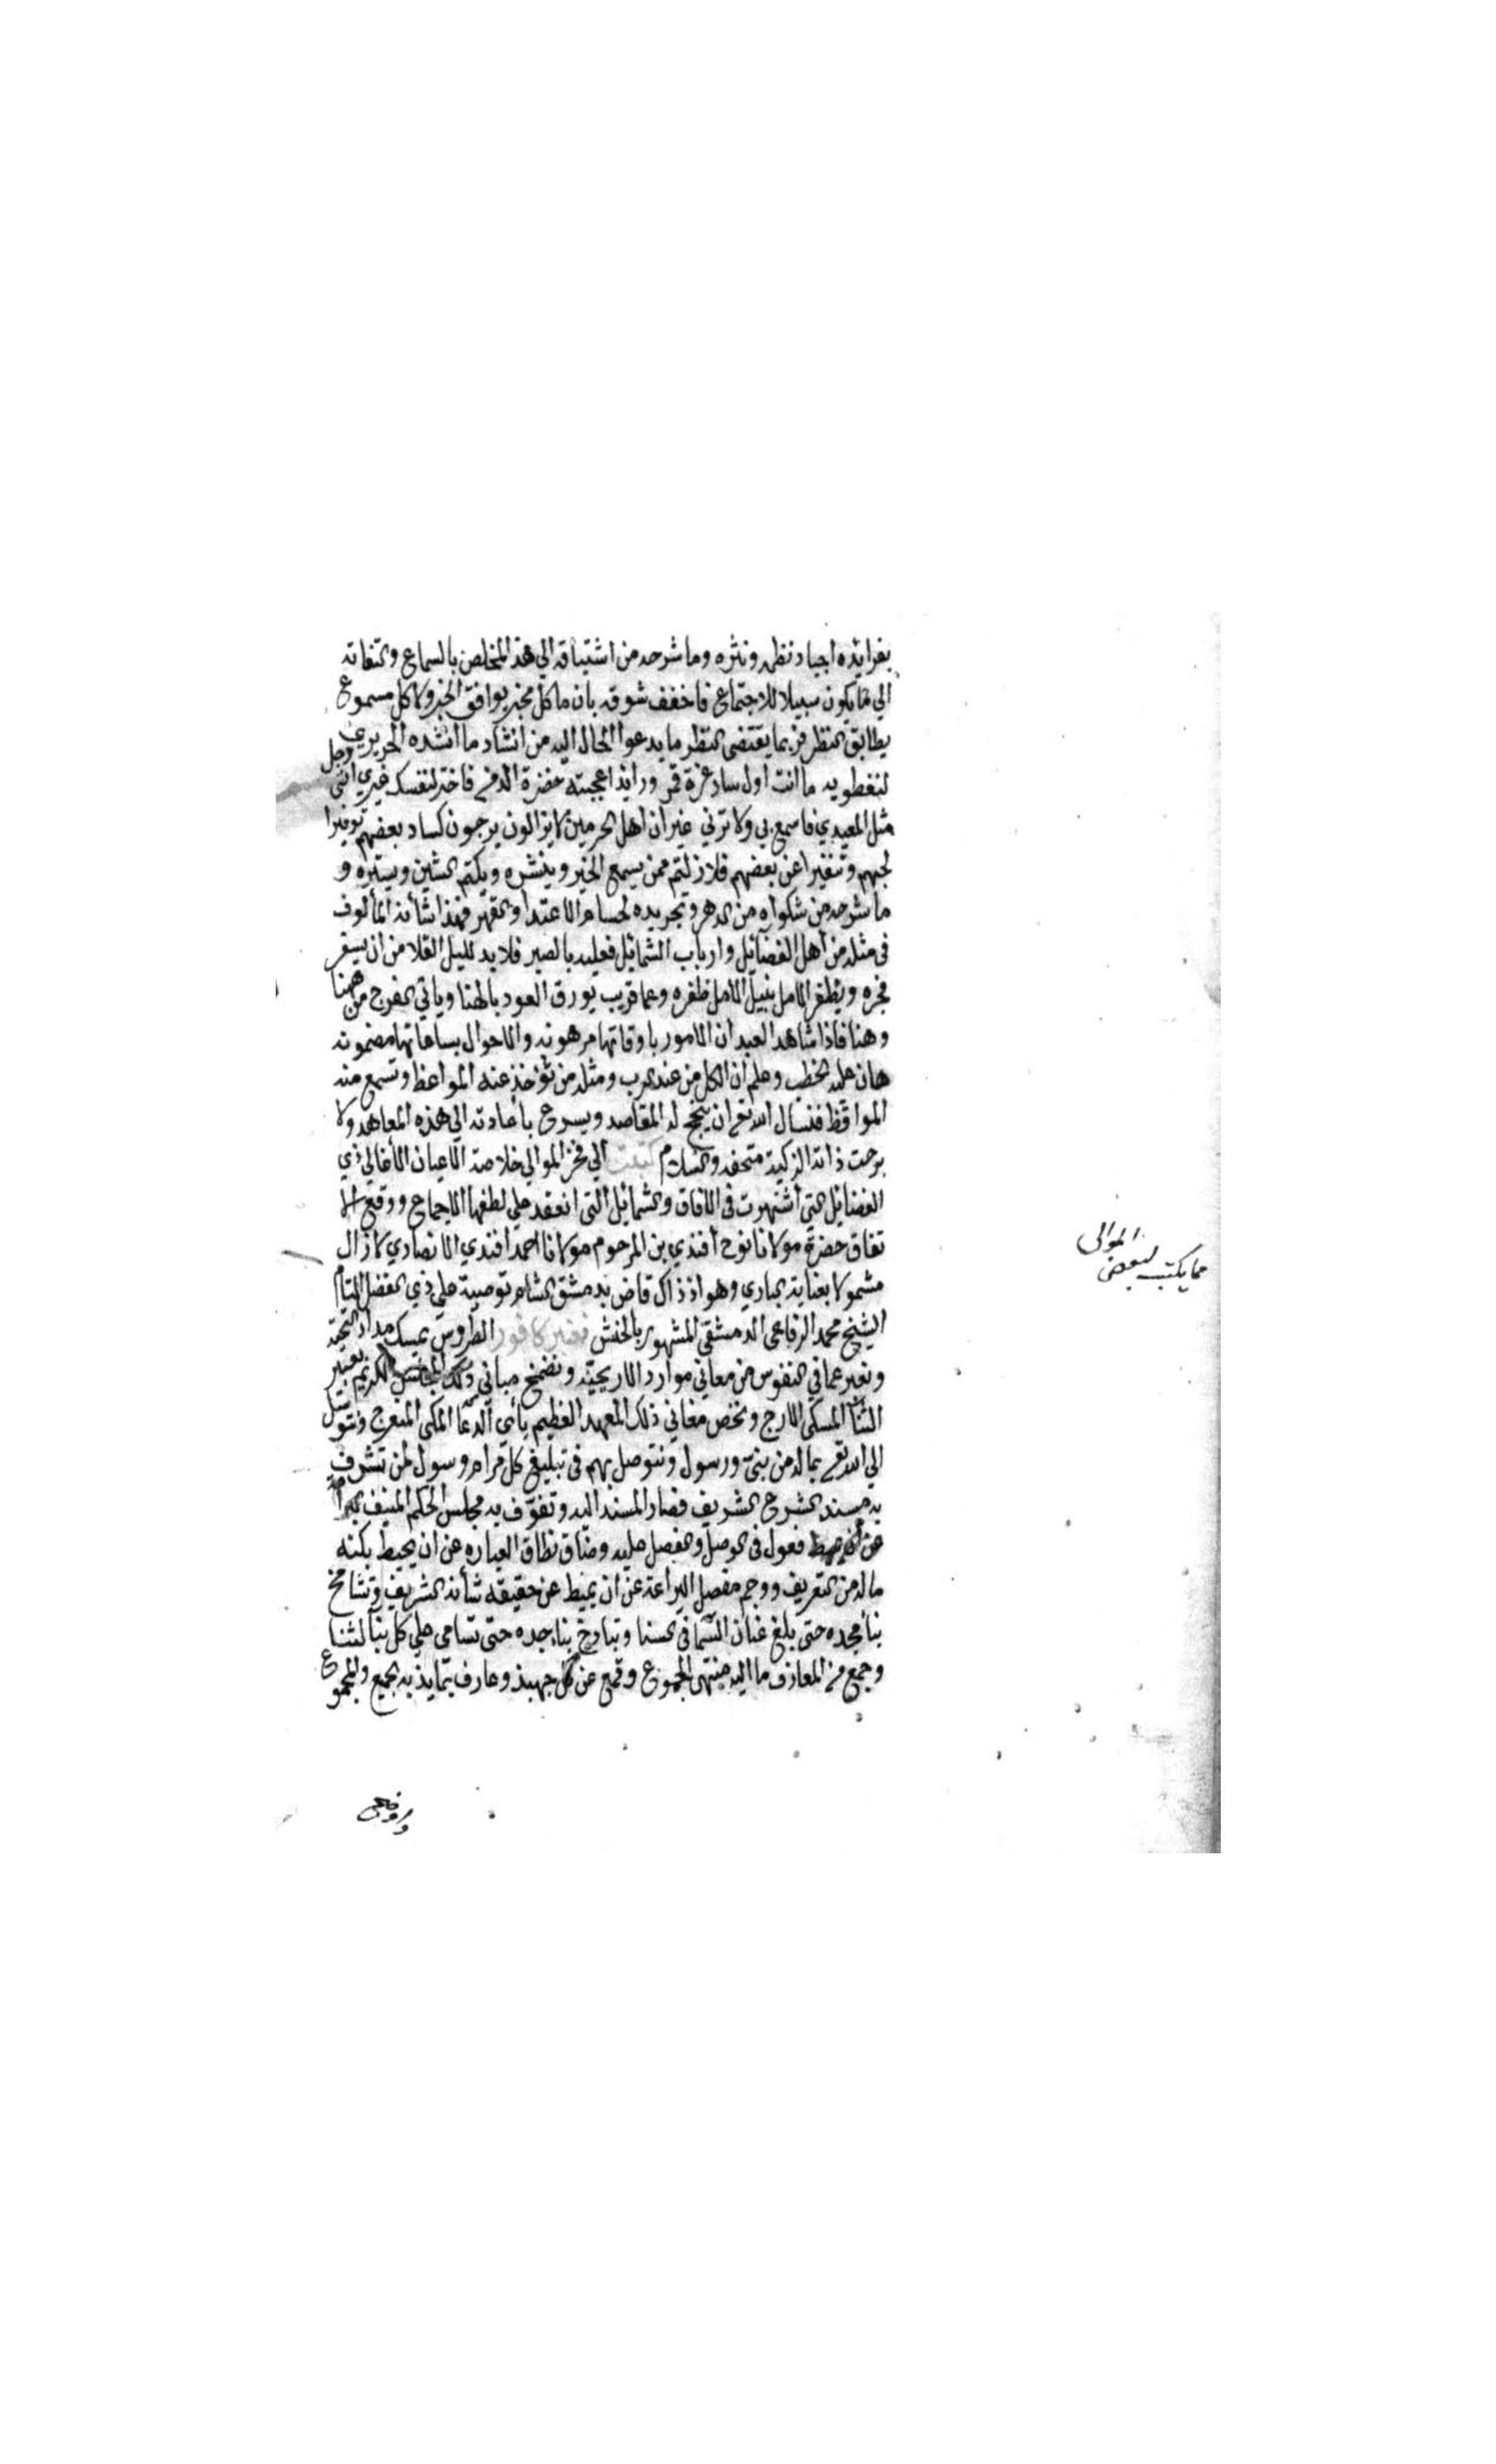 بفرايده اجياد نظمه ونثره وما شرحه من اشتياقه الي هذا المخلص بالسماع والتفاته
الي ما يكون سبيلا للاجتماع فاخفف شوقه بان ما كل مخبر يوافق الخبر ولا كل مسموع
يطابق النظر فربما يقتضى النظر ما يدعوا الحال اليه من انشاد ما انشده الحريري
لنفطويه ما انت اول سار غرة قمر ورايد اعجبته خضرة الدمن فاختر لنفسك غيري انني رجل
مثل المعيدي فاسمع بي ولا ترني غير ان اهل الحرمين لا يزالون يرجمون كساد بعضهم توفيرا
لجبهم وتنفيرا عن بعضهم فلا زلتم ممن يسمع الخير وينشره ويكتم الشين ويستره و
ما شرحه من شكواه من الدهر وتجريده لحسام الاعتدا والقهر فهذا شأنه المألوف
في مثله من اهل الفضائل وارباب الشمائل فعليه بالصبر فلا بد لليل القلا من ان يسفر
فجره ويظفر الامل بنيل الامل ظفره وعما قريب يورق العود بالهنا وياتي الفرج من ههنا
وهنا فاذا شاهد العبد ان الامور باوقاتها مرهونه والاحوال بساعاتها مضمونه
هان عليه الخطب وعلم ان الكل من عند الرب ومثله من تؤخذ عنه المواعظ وتسمع منه
المواقظ فنسال الله تع ان ينجح له المقاصد ويسرع باعادته الي هذه المعاهد ولا
برحت ذاته الزكية متحفه والسلام كتبت الي فخر الموالي خلاصة الاعيان الأعالي ذي
الفضايل التي اشتهرت في الافاق والشمائل التي انعقد علي لطفها الاجماع ووقع الا
تفاق حضرة مولانا نوح أفندي بن المرحوم مولانا احمد افندي الانصاري لا زال
مشمولا بعناية الباري وهو اذ ذاك قاض بدمشق الشام توصية علي ذي الفضل التام
الشيخ محمد الرفاعي الدمشقي المشهور بالخفش نعبر كافور الطروس بمسك مداد التحية
ونعبر عما في النفوس من معاني موارد الاريحية ونضمخ مباني ذلك المجلس الكريم بعبير
الثنآ المسكي الارج ونخص مغاني ذلك المعهد العظيم باسى الدعا المكي المنعرج ونتوسل
الي الله تع بما له من نبى ورسول ونتوصل بهم في تبليغ كل مرام وسول لمن تشرف
به مسند الشرع الشريف فصار المسند اليه وتفوف به مجلس الحكم المنيف
فعول في الوصل والفصل عليه وضاق نطاق العباره عن ان يحيط بكنه
ما له من التعريف ووجم مفصل اليراعة عن ان يميط عن حقيقه شأنه الشريف وتشامخ
بنأ مجده حتى بلغ عنان السمآ في السنا وتبارخ بناء جده حتى تسامى علي كل بنآ لثنا
وجمع من المعارف ما اليه منتهى الجموع وقمع عن كل جهبذ وعارف بتمايذ به الجميع والمجموع
مما يكتب لبعض
الموالى